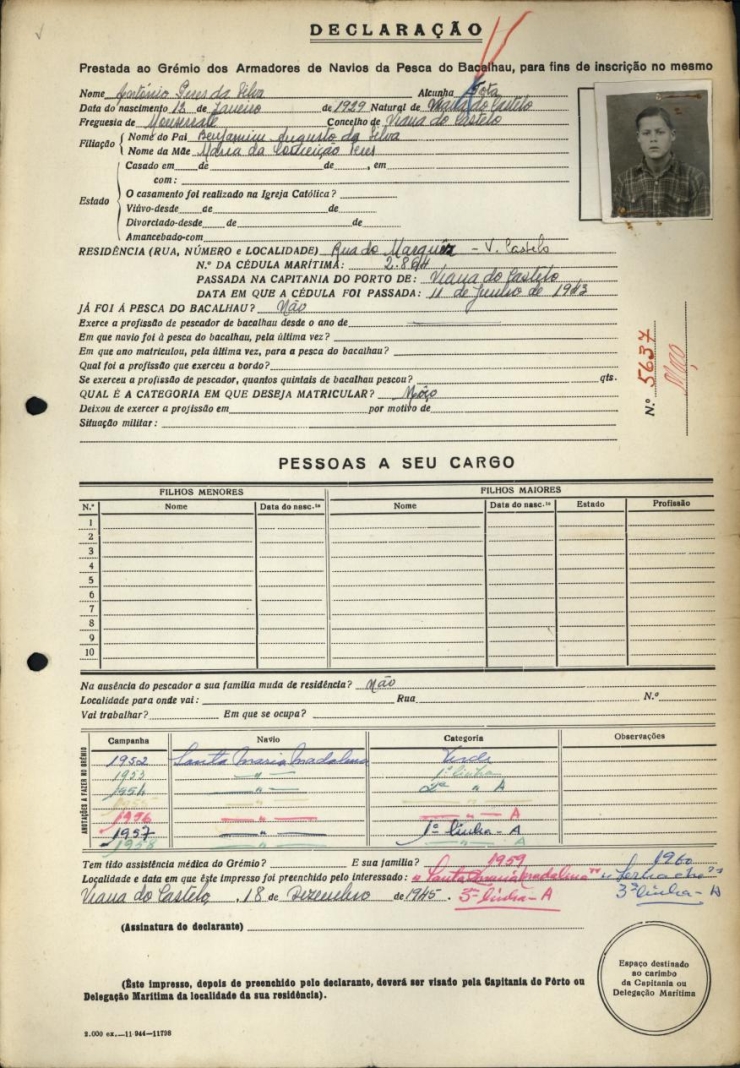 DECLARAÇÃO
Prestada ao Grémio dos Armadores de Navios da Pesca do Bacalhau, para fins de inscrição no mesmo
Nome António Pires da Silva Alcunha
Data do nascimento 12 de Janeiro de 1929 Natural de Viana do Castelo
Freguesia de Monserrate Concelho de Viana do Castelo
Filiação Nome do Pai Benjamim Augusto da Silva
Nome da Mãe Maria da Conceição Pires
Estado Casado em de de , em
com:
O casamento foi realizado na Igreja Católica?
Viúvo-desde de de
Divorciado-desde de de
Amancebado-com
RESIDÊNCIA (RUA, NÚMERO e LOCALIDADE) Rua do Marquês - V. Castelo
N.º DA CÉDULA MARÍTIMA: 2.894
PASSADA NA CAPITANIA DO PORTO DE: Viana do Castelo
DATA EM QUE A CÉDULA FOI PASSADA: 11 de Junho de 1943
JÁ FOI Á PESCA DO BACALHAU? Não
Exerce a profissão de pescador de bacalhau desde o ano de
Em que navio foi à pesca do bacalhau, pela última vez?
Em que ano matriculou, pela última vez, para a pesca do bacalhau?
Qual foi a profissão que exerceu a bordo?
Se exerceu a profissão de pescador, quantos quintais de bacalhau pescou? qts.
QUAL É A CATEGORIA EM QUE DESEJA MATRICULAR? Môço
Deixou de exercer a profissão em por motivo de
Situação militar:
N.º 5637
Môço
PESSOAS A SEU CARGO
FILHOS MENORES FILHOS MAIORES
N.º Nome Data do nasc.to Nome Data do nasc.to Estado Profissão
1
2
3
4
5
6
7
8
9
10
Na ausência do pescador a sua família muda de residência? Não
Localidade para onde vai: Rua N.º
Vai trabalhar? Em que se ocupa?
ANOTAÇÕES A FAZER NO GRÉMIO
Campanha Navio Categoria Observações
1952 Santa Maria Madalena Verde
1953 — " — 1ª linha
1954 — " — 2ª " A
1955 — " — — " —
1956 — " — — " — A
1957 — " — 1ª linha - A
1958 — " —
Tem tido assistência médica do Grémio? E sua família? 1959 1960
Localidade e data em que êste impresso foi preenchido pelo interessado: "Santa Maria Madalena"
Viana do Castelo, 18 de Dezembro de 1945. 3ª linha - A 3ª linha - A
(Assinatura do declarante)
(Êste impresso, depois de preenchido pelo declarante, deverá ser visado pela Capitania do Pôrto ou
Delegação Marítima da localidade da sua residência).
Espaço destinado
ao carimbo
da Capitania ou
Delegação Marítima
2.000 ex.—11 944—11798